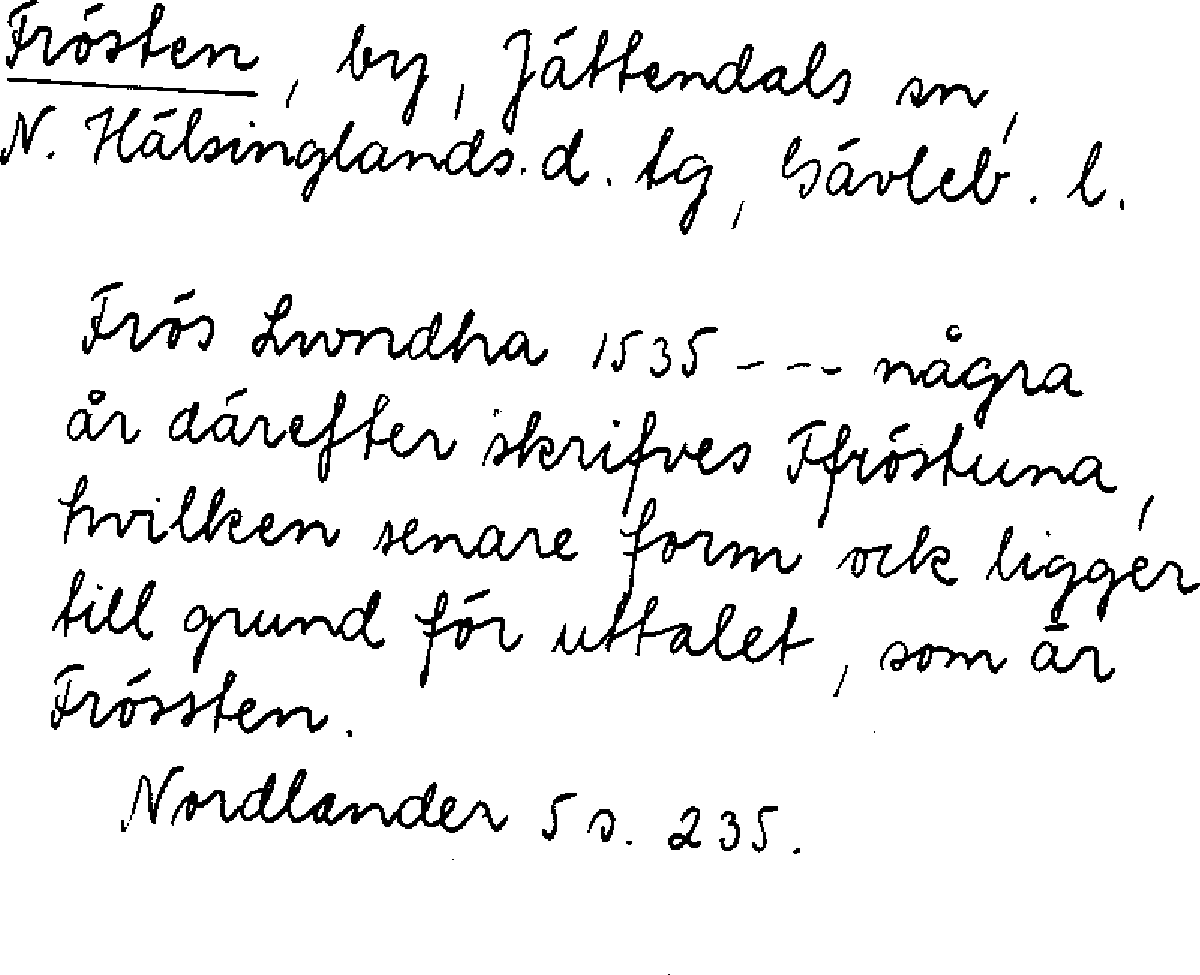 Frösten, by, Jättendals sn,
N. Hälsinglands.d. tg, Gävleb. l.
Frös Lwndha 1535 --- några
år därefter skrifves Ffröstuna,
hvilken senare form ock ligger
till grund för uttalet, som är
Frössten.
Nordlander 5 s. 235.